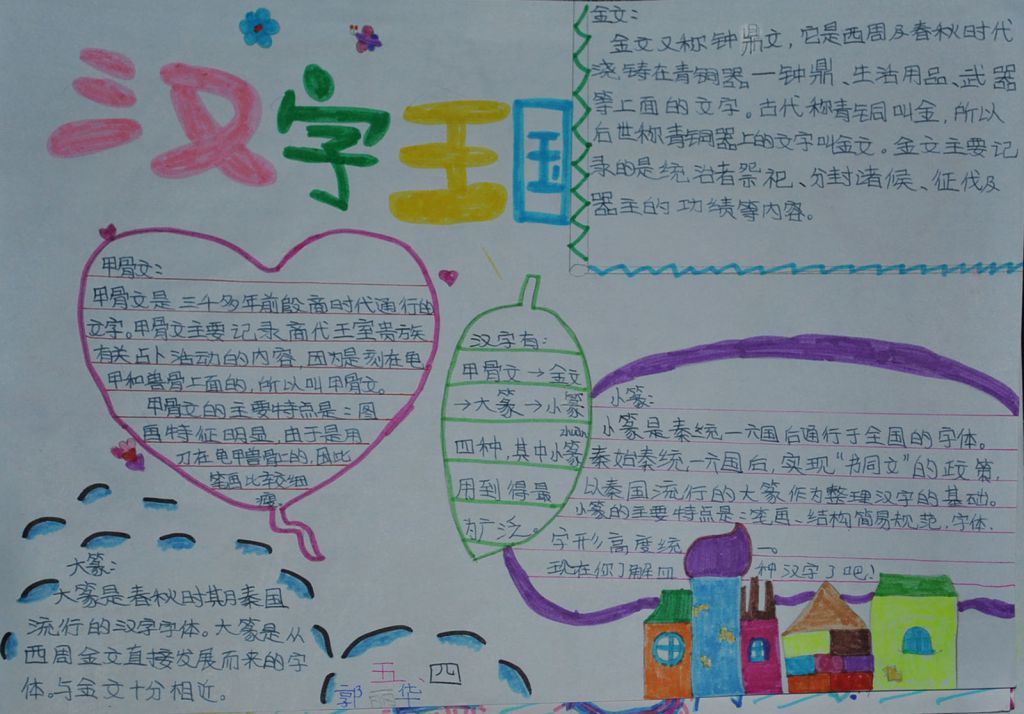 汉字王国
金文:
金文又称钟鼎文,它是西周及春秋时代
浇铸在青铜器—钟鼎、生活用品、武器
等上面的文字。古代称青铜叫金,所以
后世称青铜器上的文字叫金文。金文主要记
录的是统治者祭祀、分封诸候、征伐及
器主的功绩等内容。
甲骨文:
甲骨文是三千多年前殷商时代通行的
文字。甲骨文主要记录商代王室贵族
有关占卜活动的内容,因为是刻在龟
甲和兽骨上面的,所以叫甲骨文。
甲骨文的主要特点是:图
画特征明显,由于是用
刀在龟甲兽骨上的,因此
笔画比较细
瘦。
汉字有:
甲骨文→金文
→大篆→小篆
zhuàn
四种,其中小篆
用到得最
为广泛。
小篆:
小篆是秦统一六国后通行于全国的字体。
秦始秦统,一六国后,实现"书同文"的政策,
以秦国流行的大篆作为整理汉字的基础。
小篆的主要特点是:笔画、结构简易规范,字体、
字形高度统一。
现在你了解四种汉字了吧!
大篆:
大篆是春秋时期秦国
流行的汉字字体。大篆是从
西周金文直接发展而来的字
体。与金文十分相近。
五、四
郭丽华